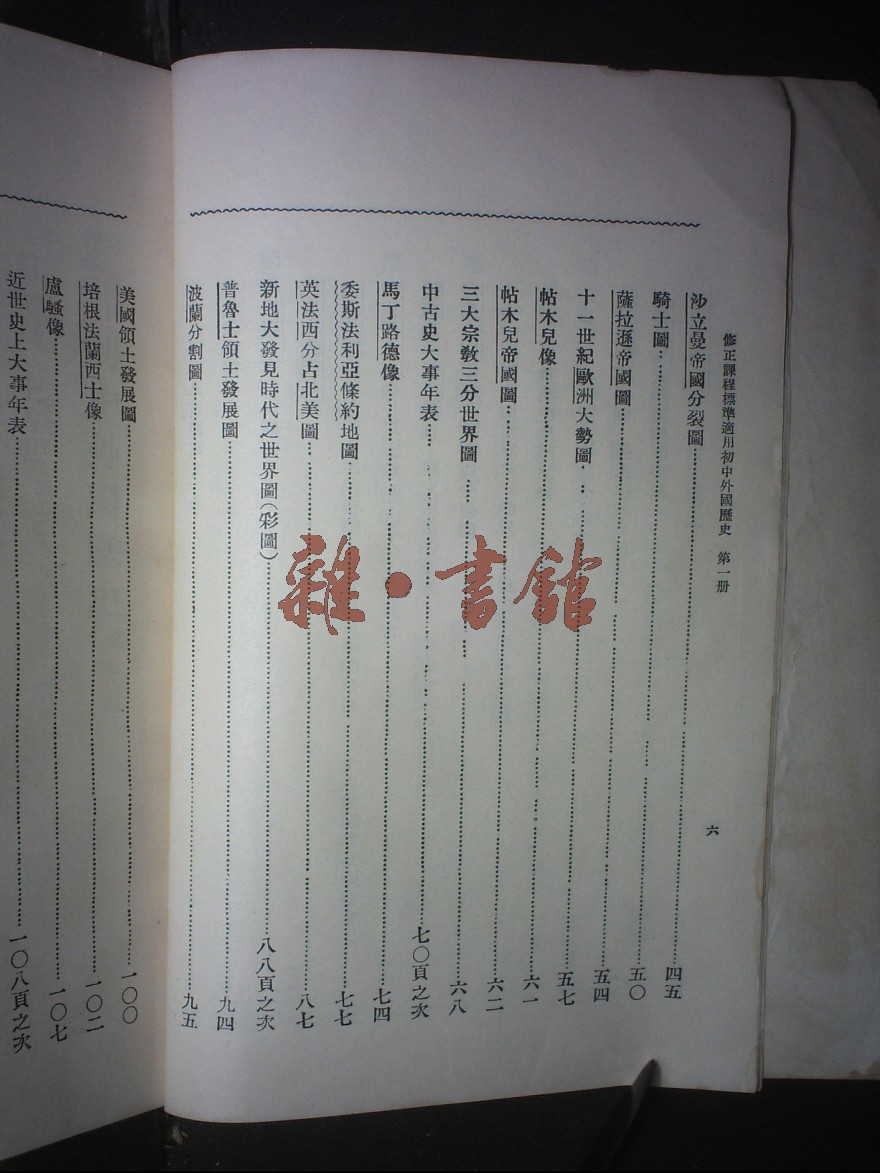 修正課程標準適用初中外國歷史　第一册
六
沙立曼帝國分裂圖……四五
騎士圖……五〇
薩拉遜帝國圖……五四
十一世紀歐洲大勢圖……五七
帖木兒像……六一
帖木兒帝國圖……六二
三大宗教三分世界圖……六八
中古史大事年表……七〇頁之次
馬丁路德像……七四
委斯法利亞條約地圖……七七
英法西分占北美圖……八七
新地大發見時代之世界圖(彩圖)……八八頁之次
普魯士領土發展圖……九四
波蘭分割圖……九五
美國領土發展圖……一〇〇
培根法蘭西士像……一〇二
盧騷像……一〇七
近世史上大事年表……一〇八頁之次
雜·書館